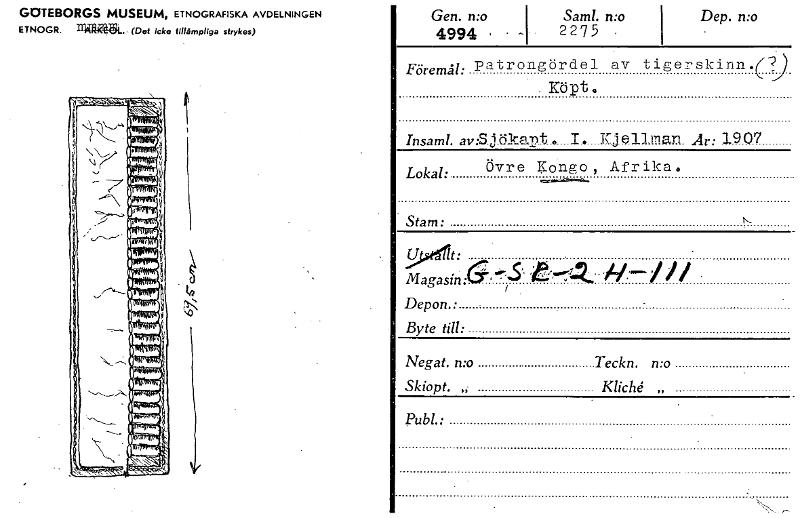 GÖTEBORGS MUSEUM, ETNOGRAFISKA AVDELNINGEN
ETNOGR. ARKEOL. (Det icke tillämpliga strykes)
69,5 cm
Gen. n:o Saml. n:o Dep. n:o
4994 2275
Föremål: Patrongördel av tigerskinn. (?)
Köpt.
Insaml. av: Sjökapt. I. Kjellman År: 1907
Lokal: Övre Kongo, Afrika.
Stam:
Utställt:
Magasin: G-SR-2 H-III
Depon.:
Byte till:
Negat. n:o Teckn. n:o
Skiopt. „ Kliché „
Publ.: